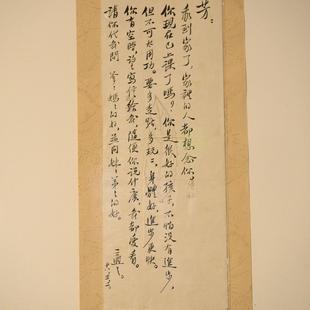 芳：
我到家了，家裡的人都想念你，
你現在已上課了嗎？你是很好的孩子，不怕沒有進步，
但不可太用功。要多走路，多玩玩，身體好進步更快。
你有空時，請寫信給我，隨便你說什麼，我都愛看。
請你代我問爹爹媽媽的好，並問妹妹弟弟的好。